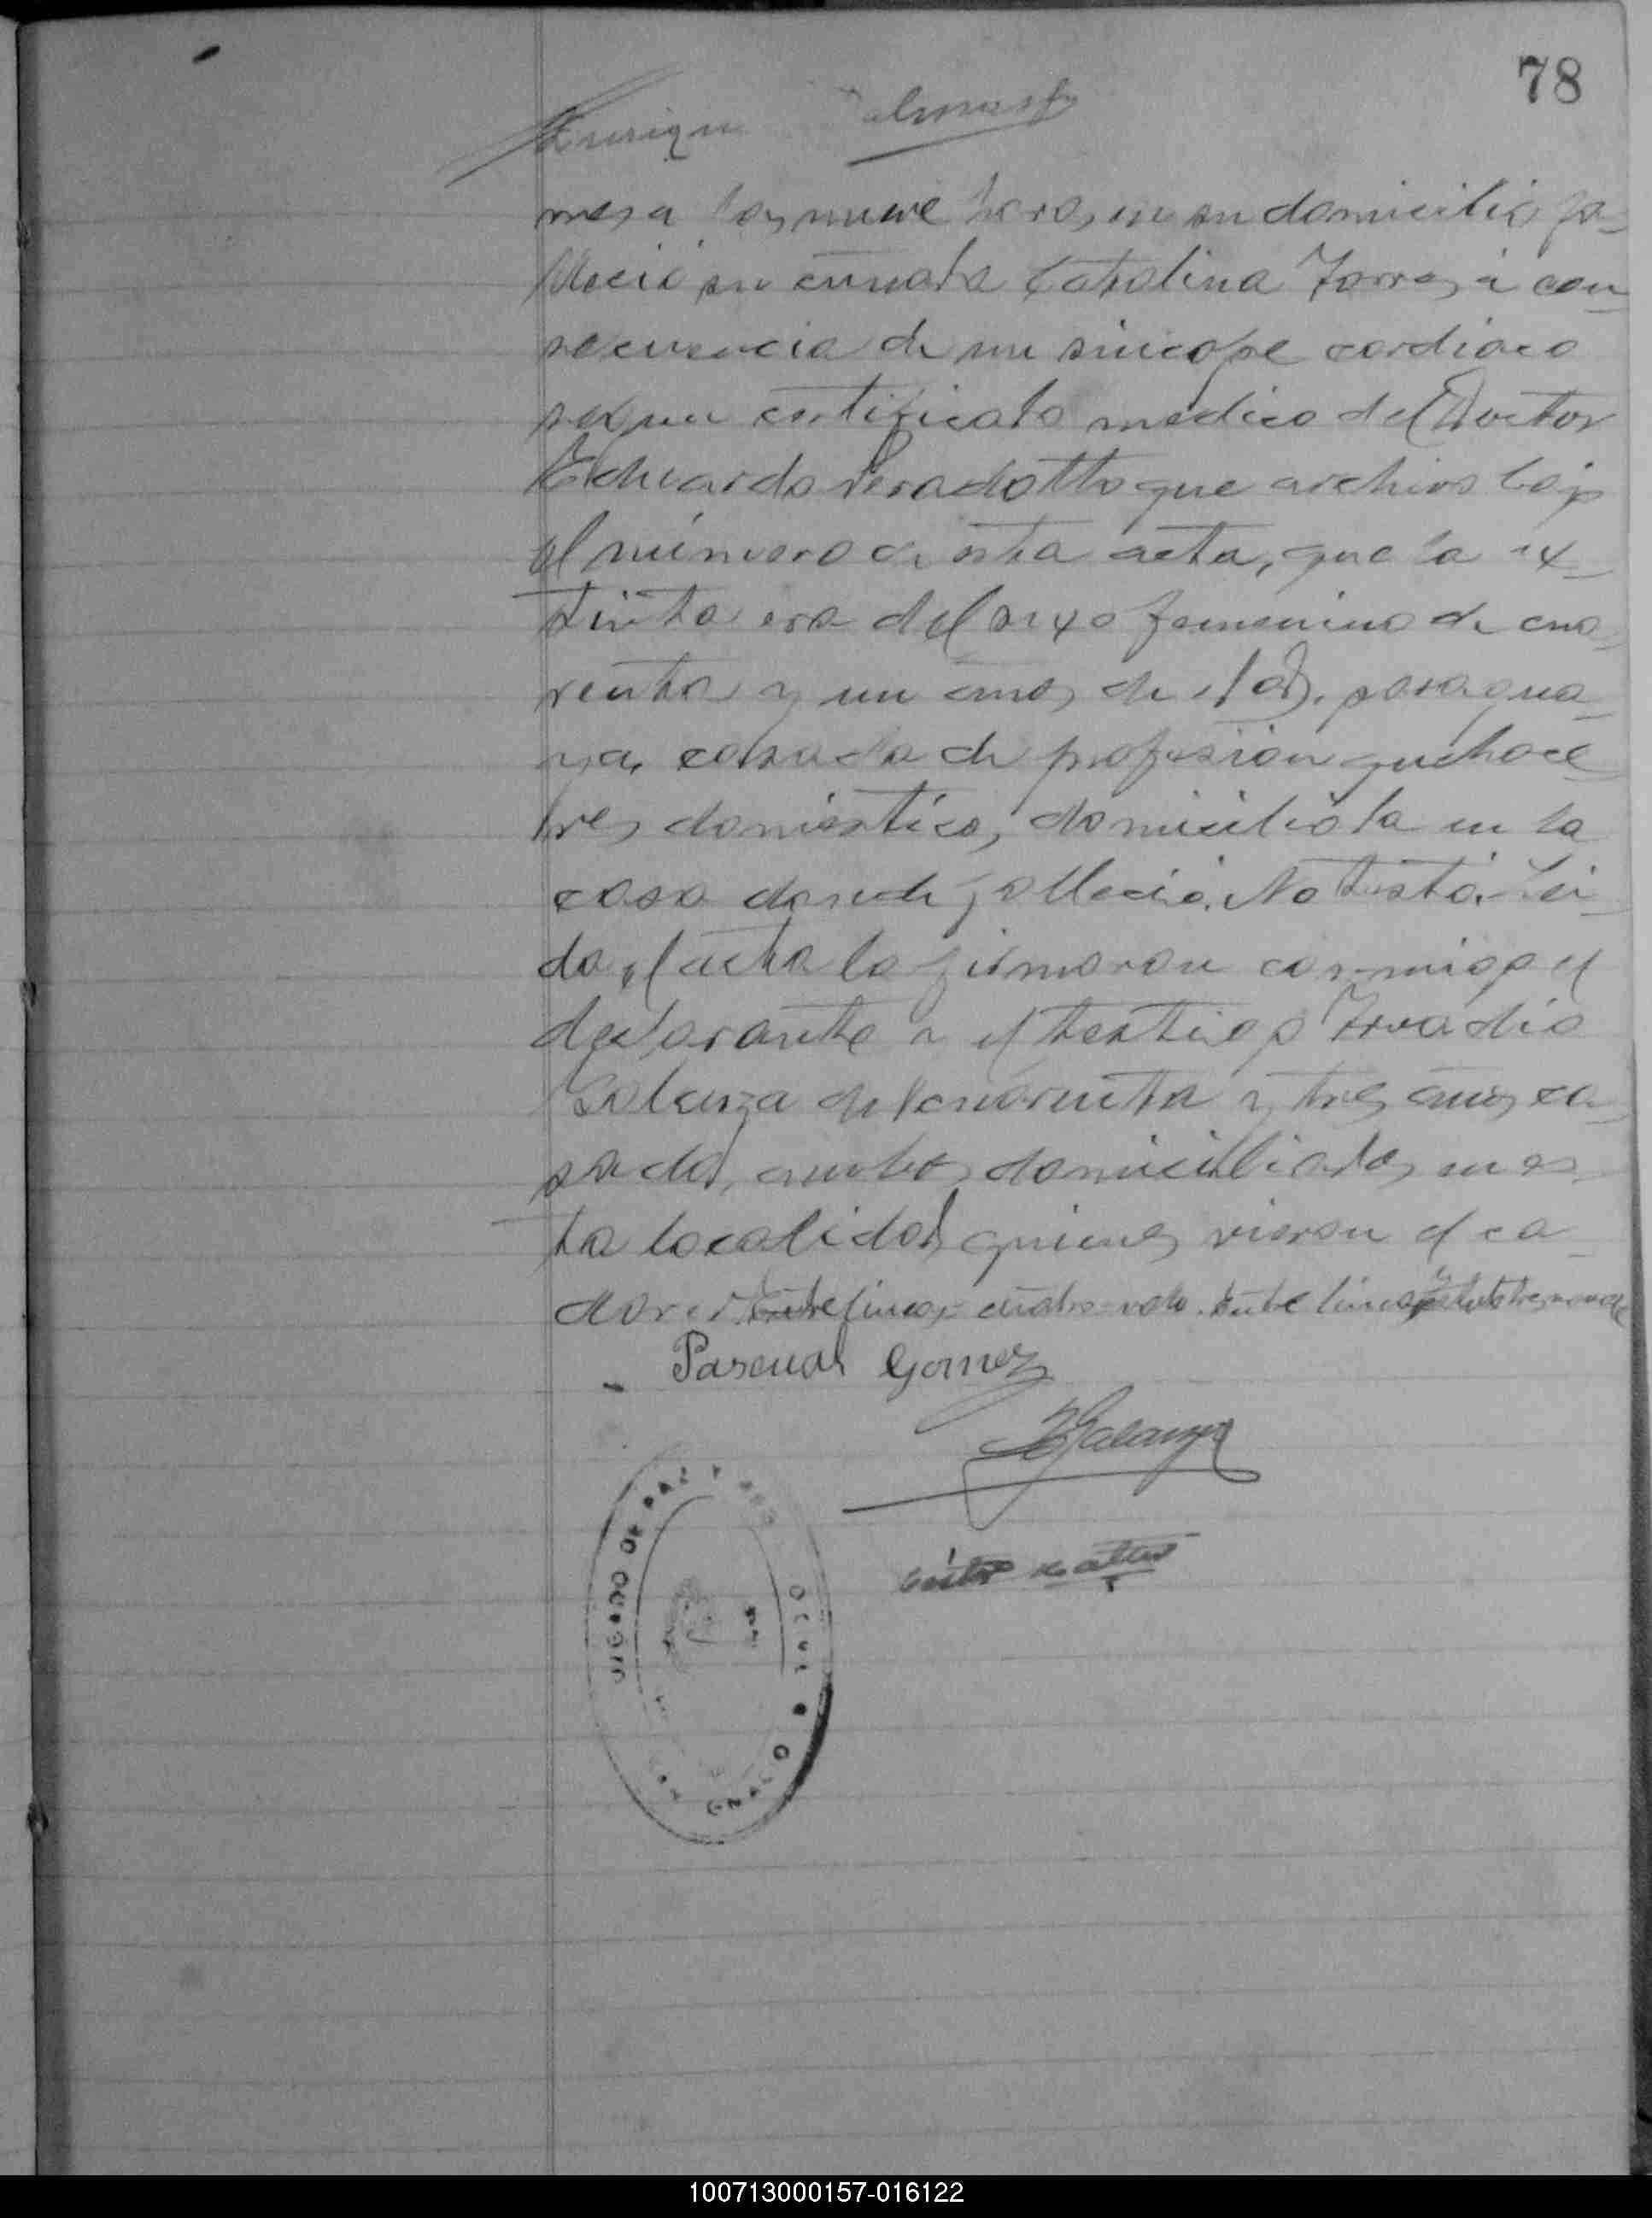 78
Enrique
mes a las nueve horas, en su domicilio fa-
lleció su cuñada Catalina Torres á con-
secuencia de un sincope cardiaco
segun certificato medico del Doctor
Eduardo Veradotto que archivo bajo
el número de esta acta, que la ex-
tinta era del sexo femenino de cua-
renta y un años de edad, paragua-
ya, casada de profesion quehace-
res domesticos, domiciliada en la
casa donde falleció. No testó. Lei-
da el acta la firmaron conmigo el
declarante y el testigo
Galarza de cuarenta y tres años ca-
sado, ambos domiciliados en es-
ta localidad quienes vieron el ca-
daver. Entre lineas vale. Entre lineas
Pascual Gomez
Galarza
DE PAZ Y